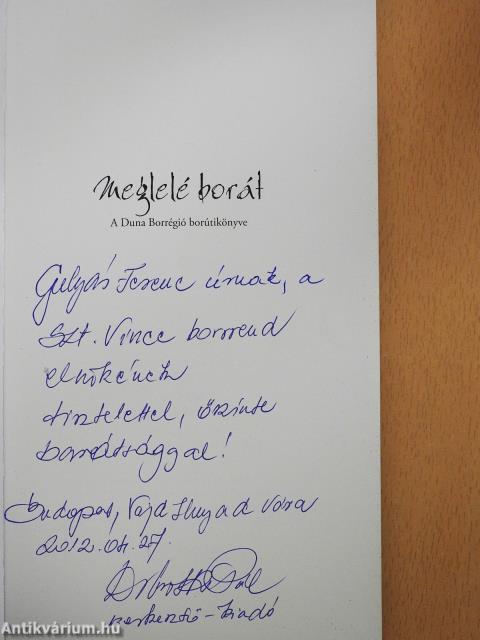 Meglelé borát
A Duna Borrégió borútikönyve
Gulyás Ferenc úrnak, a
Szt. Vince borrend
elnökének
tisztelettel, őszinte
barátsággal!
Budapest, Vajdahunyad vára
2012.04.27.
szerkesztő-kiadó
Antikvárium.hu